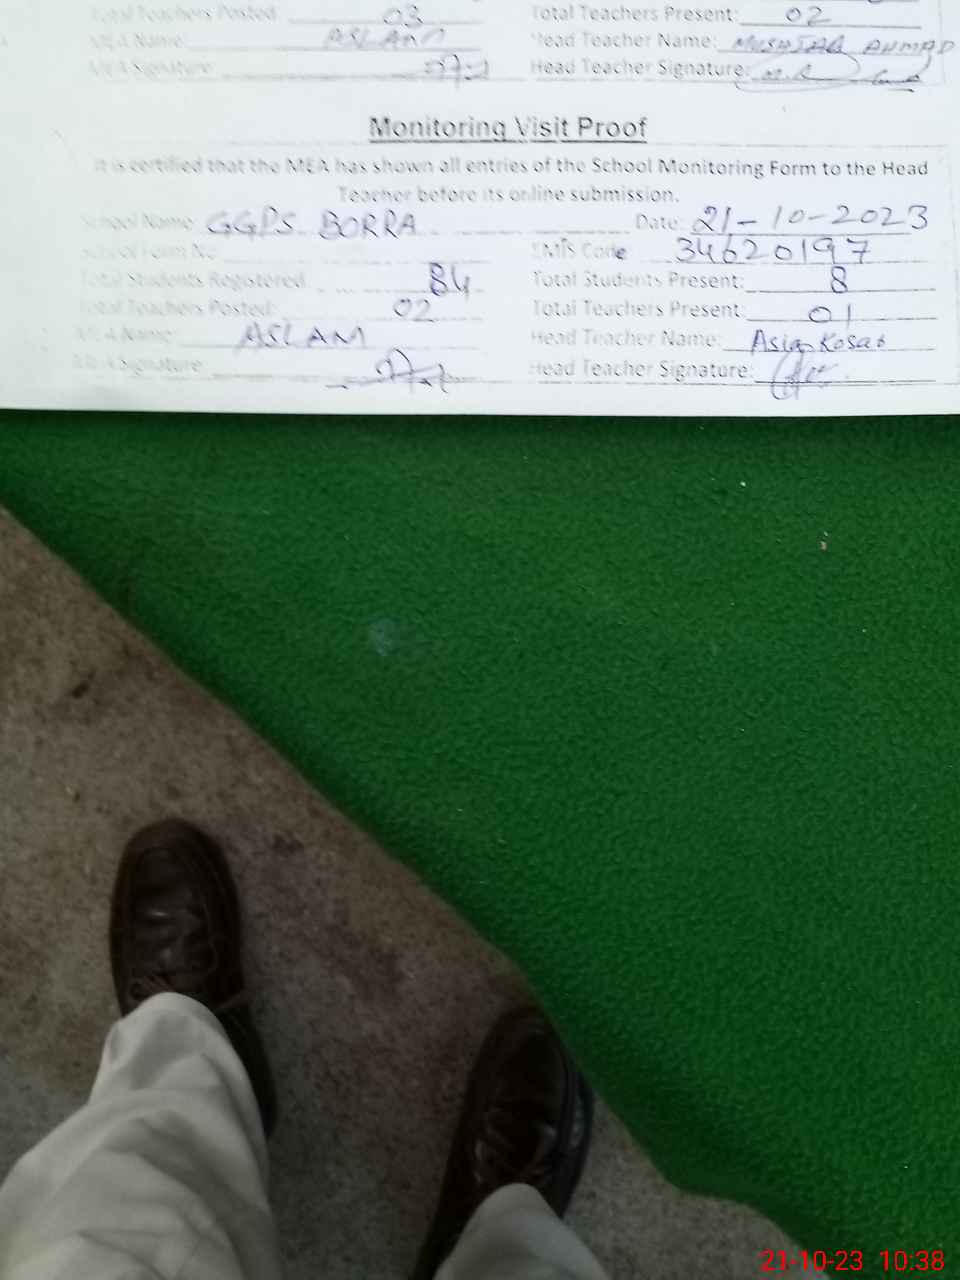 Total Teachers Posted: 03 Total Teachers Present: 02
MEA Name: ASLAM Head Teacher Name: MUSHTAQ AHMAD
MEA Signature: Head Teacher Signature:
Monitoring Visit Proof
It is certified that the MEA has shown all entries of the School Monitoring Form to the Head
Teacher before its online submission.
School Name: GGPS BORRA Date: 21-10-2023
School Form No EMIS Code 34620197
Total Students Registered 84 Total Students Present: 8
Total Teachers Posted: 02 Total Teachers Present: 01
MEA Name: ASLAM Head Teacher Name: Kosar
MEA Signature: Head Teacher Signature:
21-10-23 10:38